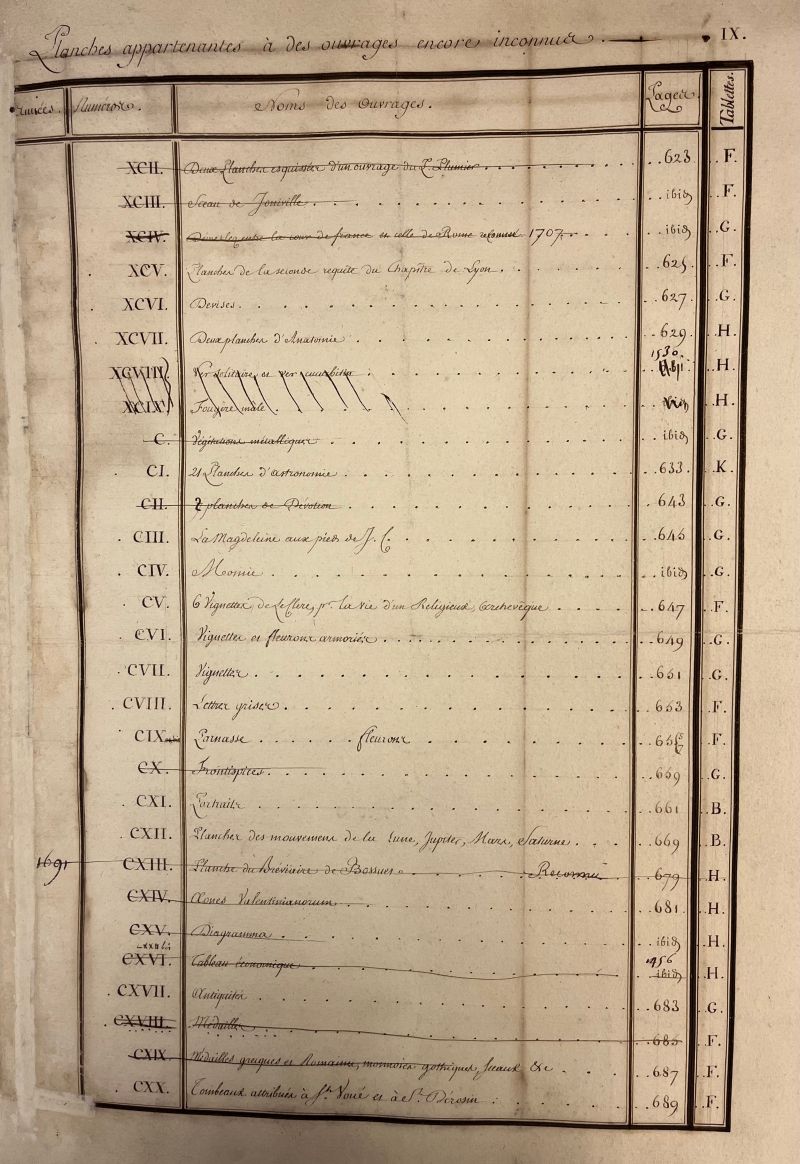 Planches appartenantes à des ouvrages encore inconnus. IX.
Numéros. Noms des Ouvrages. Pages. Tablettes.
XCII. Deux Planches esquissées d'un ouvrage du P. Plumier 623 F.
XCIII. Sceau de Joinville ibid G. F.
XCIV. Démeslez entre la cour de france et celle de Rome 1707. ibid G.
XCV. Planches de la seconde requête du Chapitre de Lyon. 625 F.
XCVI. Devises. 627 G.
XCVII. Deux planches d'Anatomie 629 H.
XCVIII. Ver solitaire, et ver cucurbitin 1530. H.
XCIX. Fougère mâle H.
C. Végétations métalliques ibid G.
CI. 21 Planches d'astronomie 633 K.
CII. 2 planches de Dévotion 643 G.
CIII. La Magdeleine aux pieds de J. C. 645 G.
CIV. Momie ibid G.
CV. 6 Vignettes de LeClerc, pr. la vie d'un Religieux, Archevêque 647 F.
CVI. Vignettes et fleurons armoriés 649 G.
CVII. Vignettes 651 G.
CVIII. Lettres grises 653 F.
CIX Parnasse fleurons F.
CX. Frontispices. 659 G.
CXI. Portraits 661 B.
CXII. Planches des mouvemens de la Lune, Jupiter, Mars, Saturne 669 B.
1691 CXIII. Planche du Bréviaire de Bossuet Reconnu 679 H.
CXIV. Æones Valentinianorum 681 H.
CXV. Diagramma ibid H.
CXVI. Tableau économique 456 ibid H.
CXVII. Antiquités 683 G.
CXVIII. Médailles 685 F.
CXIX. Médailles grecques et Romaines, monnoies gothiques, sceaux &c 687 F.
CXX. Tombeaux attribués à St. Voué et à St. Dérosin 689 F.